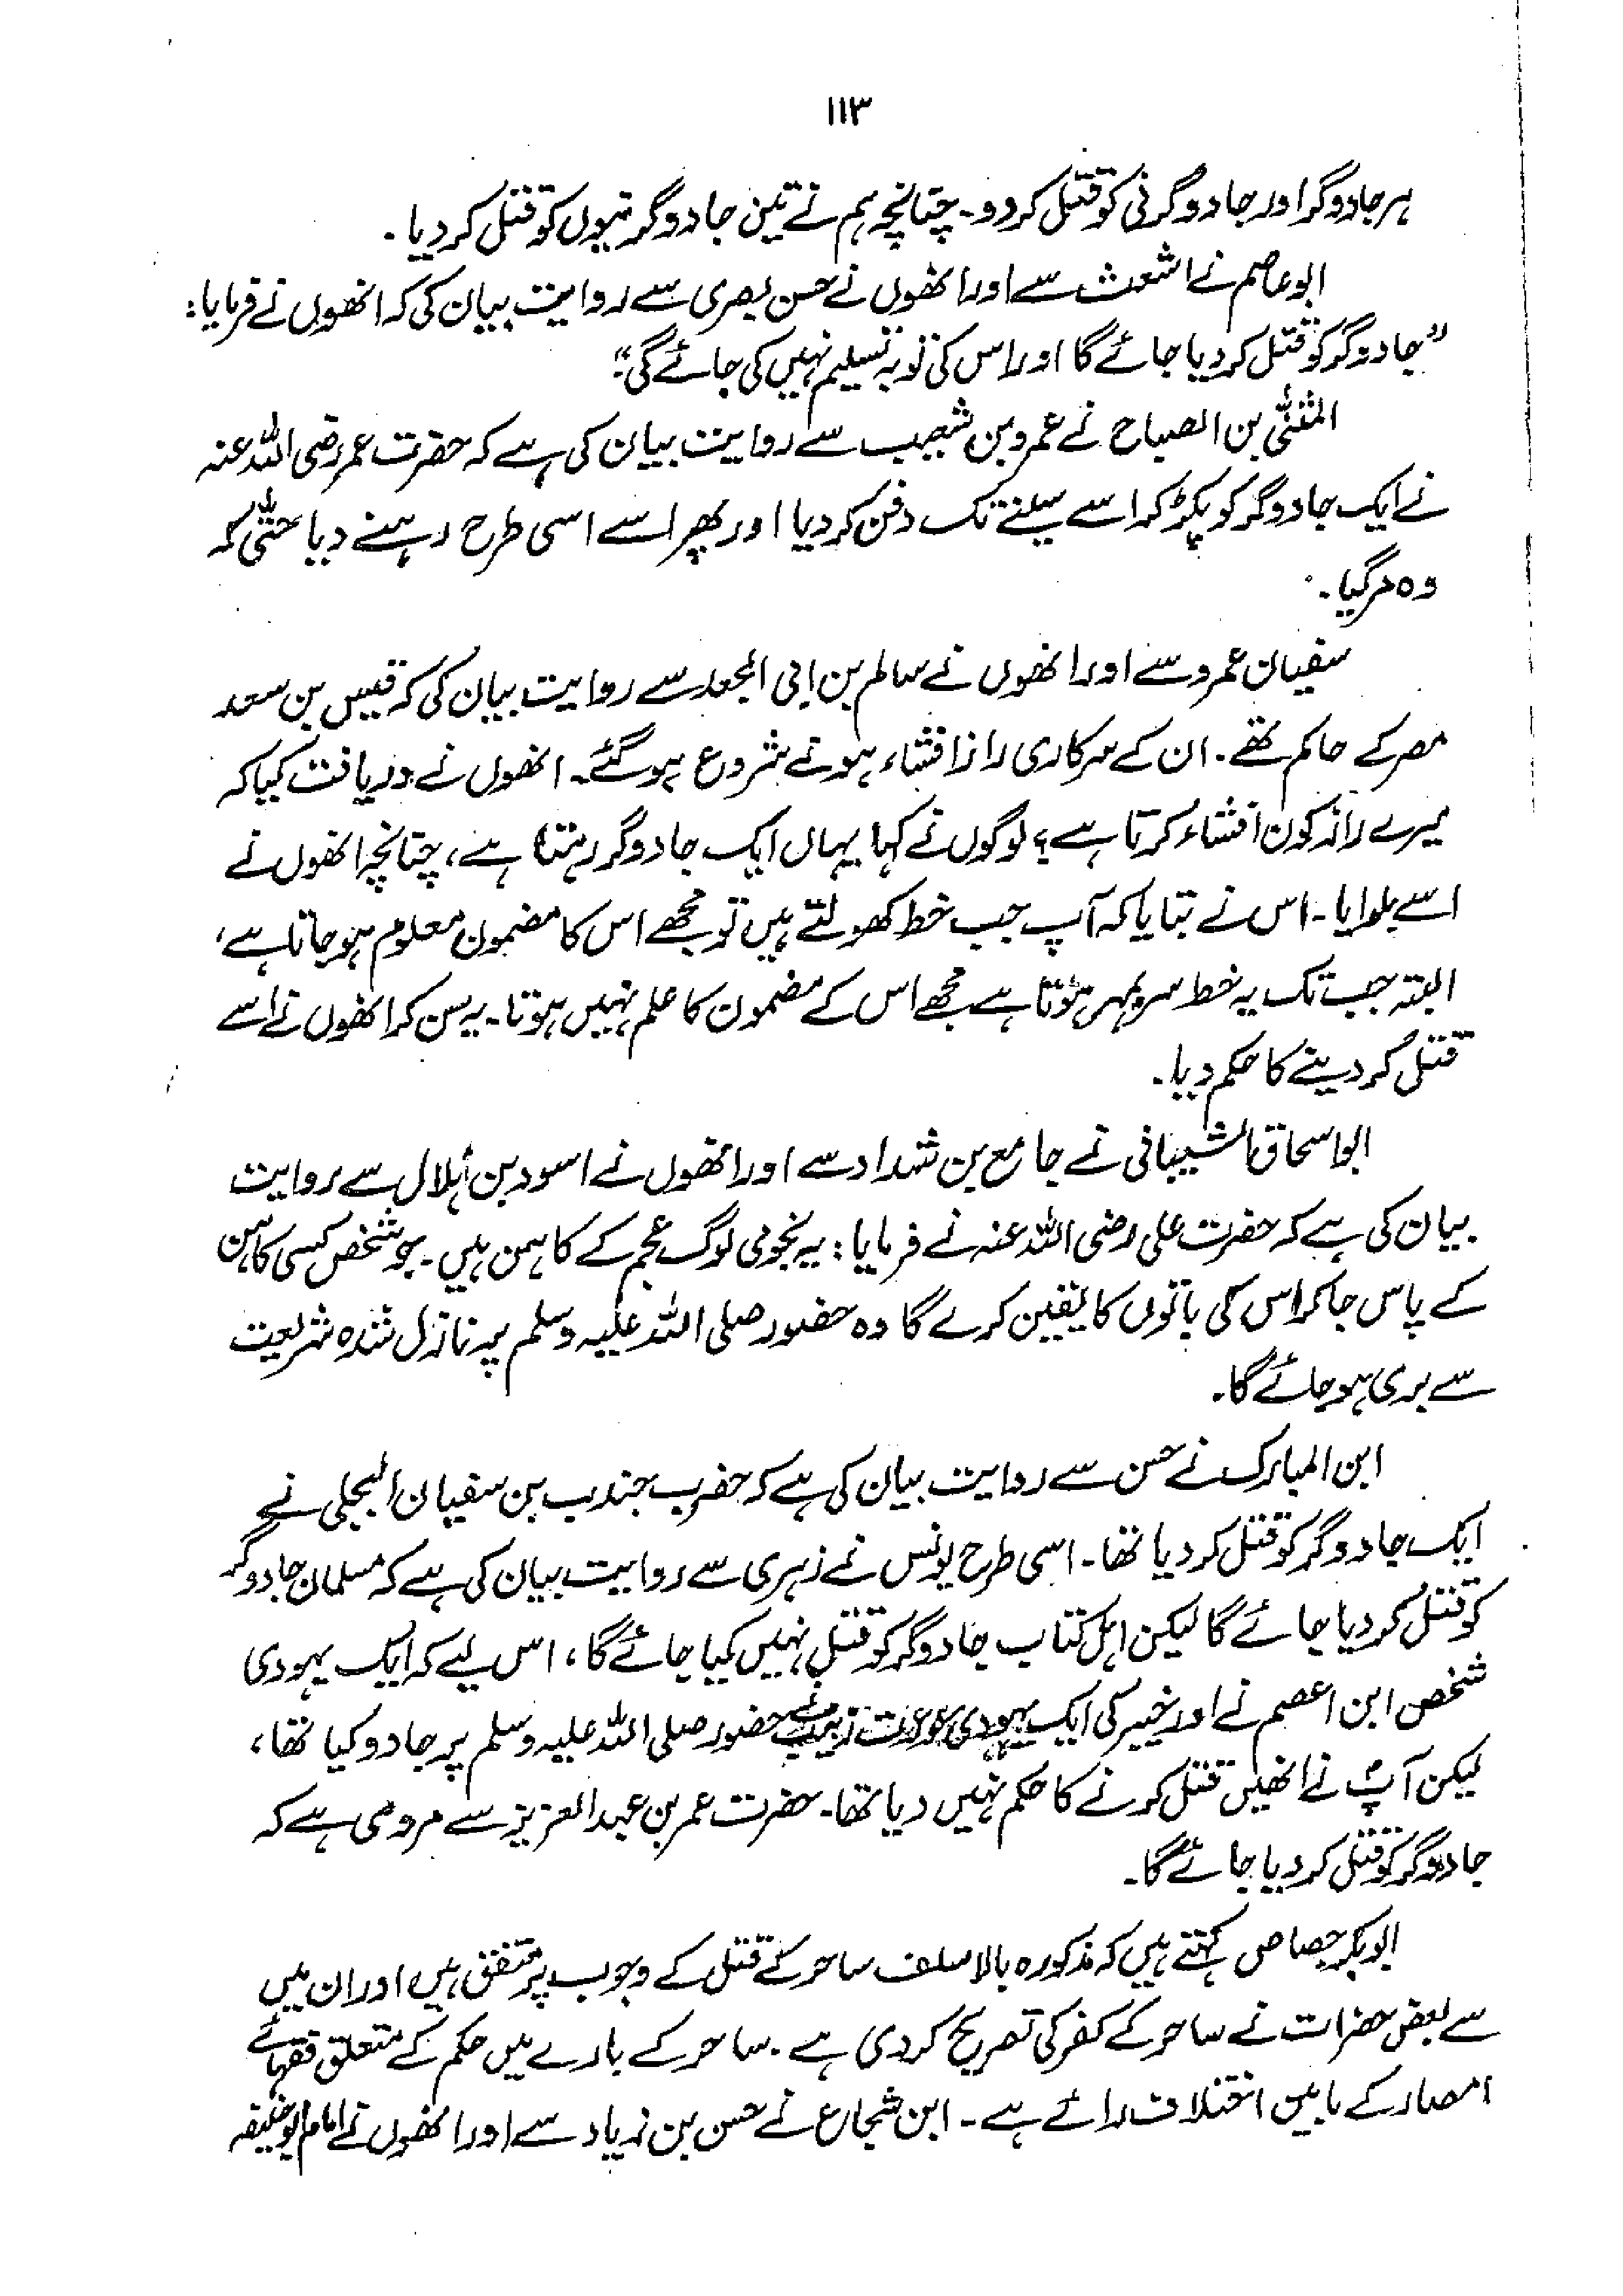 ۱۱۳
ہر جادوگر اور جادوگرنی کو قتل کر دو۔ چنانچہ ہم نے تین جادوگرنیوں کو قتل کر دیا۔
ابو عاصم نے اشعث سے اور انھوں نے حسن بصری سے روایت بیان کی کہ انھوں نے فرمایا:
”جادوگر کو قتل کر دیا جائے گا اور اس کی توبہ تسلیم نہیں کی جائے گی“۔
المثنیٰ بن الصباح نے عمرو بن شعیب سے روایت بیان کی ہے کہ حضرت عمر رضی اللہ عنہ
نے ایک جادوگر کو پکڑ کر اسے سینے تک دفن کر دیا اور پھر اسے اسی طرح رہنے دیا حتّٰی کہ
وہ مر گیا۔
سفیان عمرو سے اور انھوں نے سالم بن ابی الجعد سے روایت بیان کی کہ قیس بن سعد
مصر کے حاکم تھے۔ ان کے سرکاری راز افشاء ہونے شروع ہو گئے۔ انھوں نے دریافت کیا کہ
میرے راز کون افشاء کرتا ہے؟ لوگوں نے کہا یہاں ایک جادوگر رہتا ہے، چنانچہ انھوں نے
اسے بلوایا۔ اس نے بتایا کہ آپ جب خط کھولتے ہیں تو مجھے اس کا مضمون معلوم ہو جاتا ہے،
البتہ جب تک یہ خط سربمہر ہوتا ہے مجھے اس کے مضمون کا علم نہیں ہوتا۔ یہ سن کر انھوں نے اسے
قتل کر دینے کا حکم دیا۔
ابو اسحاق الشیبانی نے جامع بن شداد سے اور انھوں نے اسود بن ہلال سے روایت
بیان کی ہے کہ حضرت علی رضی اللہ عنہ نے فرمایا: یہ نجومی لوگ عجم کے کاہن ہیں۔ جو شخص کسی کاہن
کے پاس جا کر اس کی باتوں کا یقین کرے گا وہ حضور صلی اللہ علیہ وسلم پر نازل شدہ شریعت
سے بری ہو جائے گا۔
ابن المبارک نے حسن سے روایت بیان کی ہے کہ حضرت جندب بن سفیان البجلی نے
ایک جادوگر کو قتل کر دیا تھا۔ اسی طرح یونس نے زہری سے روایت بیان کی ہے کہ مسلمان جادوگر
کو قتل کر دیا جائے گا لیکن اہل کتاب جادوگر کو قتل نہیں کیا جائے گا، اس لیے کہ ایک یہودی
شخص ابن اعصم نے اور خیبر کی ایک یہودی عورت زینب نے حضور صلی اللہ علیہ وسلم پر جادو کیا تھا،
لیکن آپؐ نے انھیں قتل کرنے کا حکم نہیں دیا تھا۔ حضرت عمر بن عبدالعزیز سے مروی ہے کہ
جادوگر کو قتل کر دیا جائے گا۔
ابوبکر جصاص کہتے ہیں کہ مذکورہ بالا سلف ساحر کے قتل کے وجوب پر متفق ہیں اور ان میں
سے بعض حضرات نے ساحر کے کفر کی تصریح کر دی ہے۔ ساحر کے بارے میں حکم کے متعلق فقہائے
امصار کے مابین اختلاف رائے ہے۔ ابن شجاع نے حسن بن زیاد سے اور انھوں نے امام ابوحنیفہ